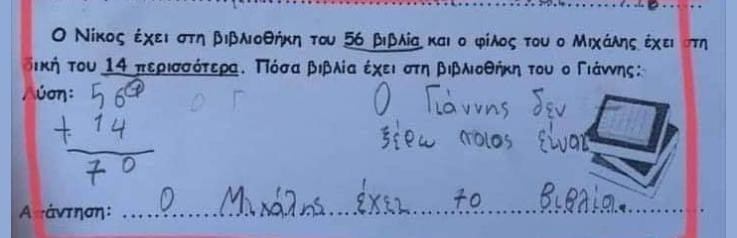 Ο Νίκος έχει στη βιβλιοθήκη του 56 βιβλία και ο φίλος του ο Μιχάλης έχει στη
δική του 14 περισσότερα. Πόσα βιβλία έχει στη βιβλιοθήκη του ο Γιάννης;
Λύση: 56
+ 14
70
Ο Γιάννης δεν
ξέρω ποιος είναι
Απάντηση: Ο Μιχάλης έχει 70 βιβλία.